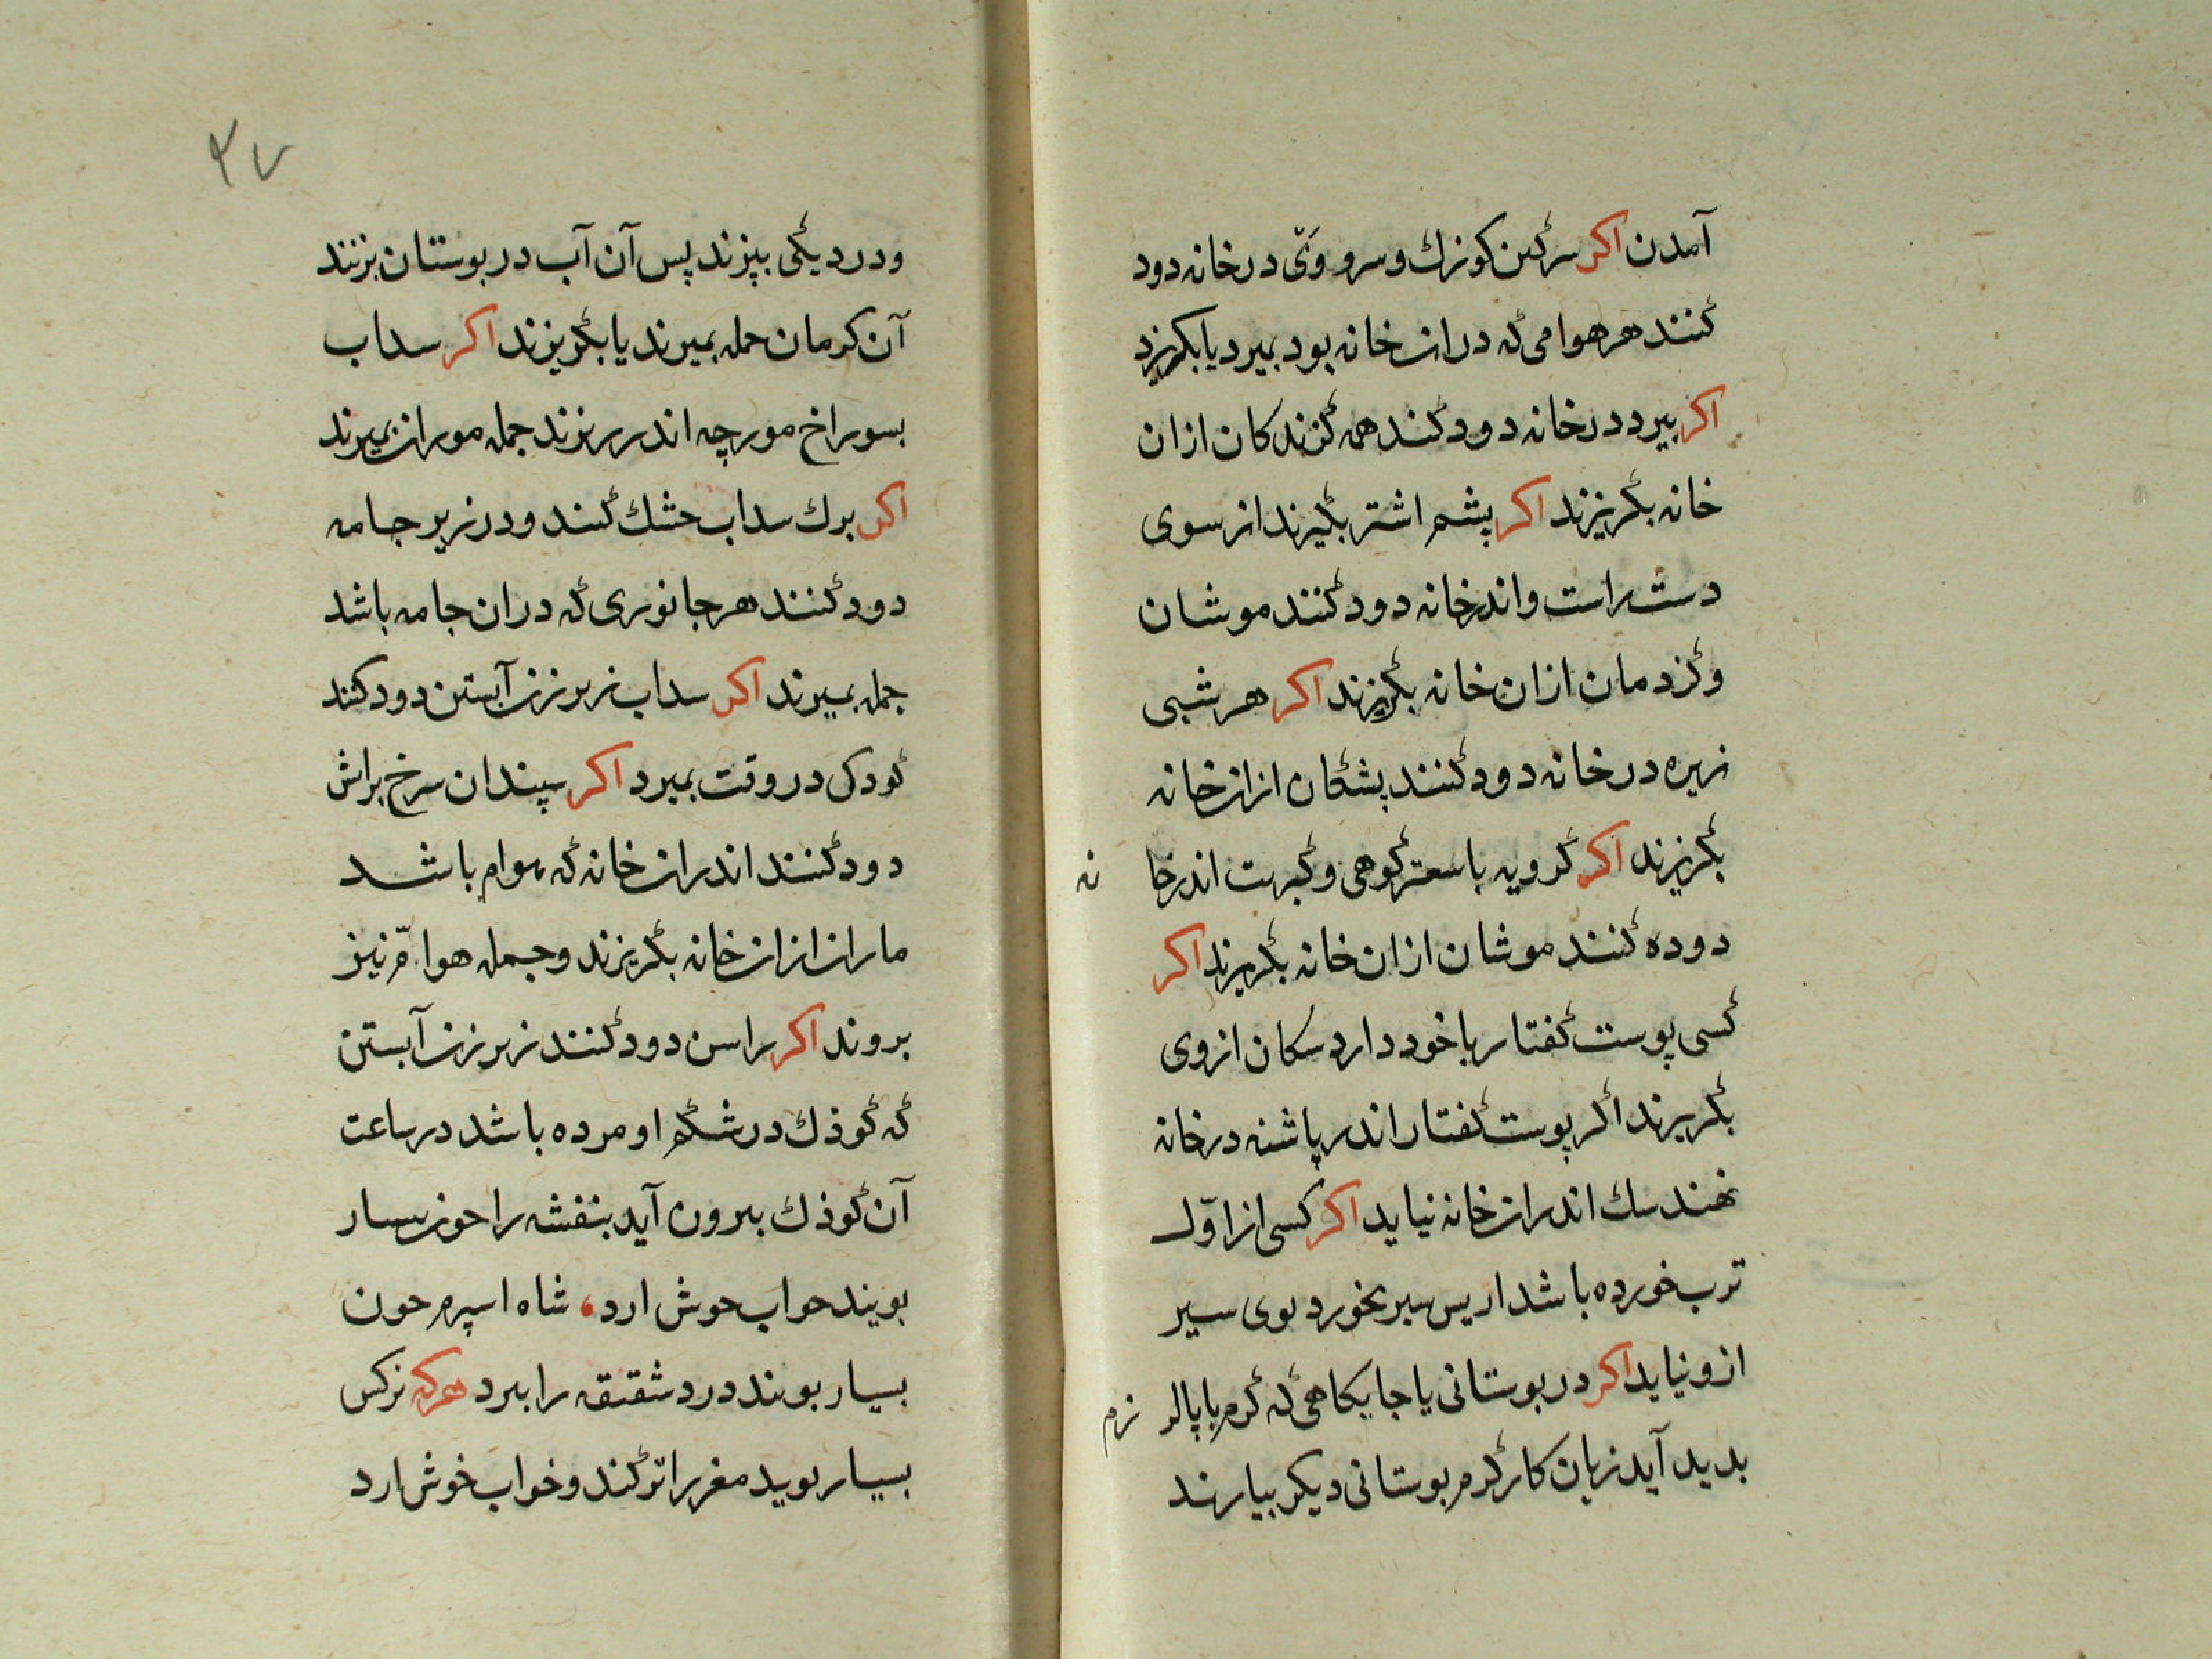 آمدن اکر سرکین کوزن و سرو وَیّ در خانه دود
کنند هر هوامی که در ان خانه بود بمیرد یا بکریزد
اکر بیرد در خانه دود کنند همه کزندکان از ان
خانه بکریزند اکر پشم اشتر بکیرند از سوی
دست راست و اندر خانه دود کنند موشان
و کزدمان از ان خانه بکریزند اکر هر شبی
زیره در خانه دود کنند پشکان از ان خانه
بکریزند اکر کرویه با سعتر کوهی و کبریت اندر خانه
دوده کنند موشان از ان خانه بکریزند اکر
کسی پوست کفتار با خود دارد سکان از وی
بکریزند اکر پوست کفتار اندر پاشنه در خانه
نهند سک اندر ان خانه نیاید اکر کسی از اوّل
ترب خورده باشد از پس سیر بخورد بوی سیر
ازو نیاید اکر در بوستانی یا جایکاهی که کرم
بدید آید زیان کار کرم بوستانی دیکر بیارند
۳۷
و در دیکی بپزند پس آن آب در بوستان بزنند
آن کرمان جمله بمیرند یا بکریزند اکر سداب
بسوراخ مورچه اندر ریزند جمله موران بمیرند
اکر برك سداب خشك کنند و در زیر جامه
دود کنند هر جانوری که در ان جامه باشد
جمله بمیرند اکر سداب زیر زن آبستن دود کنند
کودک در وقت بمیرد اکر سپندان سرخ براتش
دود کنند اندر ان خانه که هوام باشد
ماران از ان خانه بکریزند و جمله هوامّ نیز
بروند اکر راسن دود کنند زیر زن آبستن
که کوذك در شکم او مرده باشد در ساعت
آن کوذك بیرون آید بنفشه را چون بسیار
بویند خواب خوش ارد، شاه اسپرم چون
بسیار بویند درد شقیقه را ببرد هرکه نرکس
بسیار بوید مغز را تر کند و خواب خوش ارد